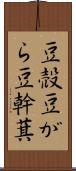 豆殻豆が
ら豆幹萁